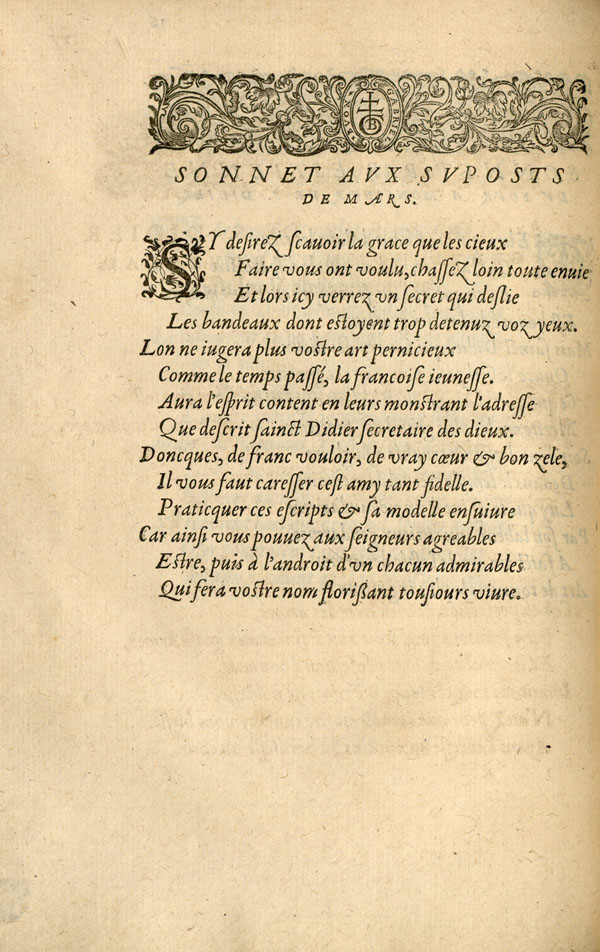 SONNET AVX SVPOSTS
DE MARS.
SY desirez scauoir la grace que les cieux
Faire vous ont voulu, chassez loin toute enuie
Et lors icy verrez vn secret qui deslie
Les bandeaux dont estoyent trop detenuz voz yeux.
Lon ne iugera plus vostre art pernicieux
Comme le temps passé, la francoise ieunesse.
Aura l'esprit content en leurs monstrant l'adresse
Que descrit sainct Didier secretaire des dieux.
Doncques, de franc vouloir, de vray cœur & bon zele,
Il vous faut caresser cest amy tant fidelle.
Practicquer ces escripts & sa modelle ensuiure
Car ainsi vous pouuez aux seigneurs agreables
Estre, puis à l'androit d'vn chacun admirables
Qui fera vostre nom florißant tousiours viure.